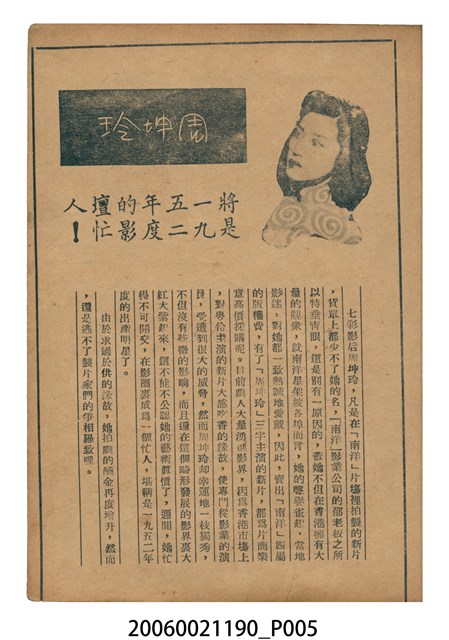 周坤玲
將是
一九
五二
年度
的影
壇忙
人！
七彩影后周坤玲，凡是在「南洋」片塲裡拍製的新片
，貨單上都少不了她的名，「南洋」影業公司的邵老板之所
以特垂靑眼，還是別有一原因的，蓋她不但在香港擁有大
量的觀衆，就南洋星架坡各埠而言，她的聲譽雀起，當地
影迷，對她都一致熱誠地愛戴，因此，賣出「南洋」四屬
的版權費，有了「周坤玲」三字主演的新片，都爲片商樂
意高價採購呢。目前戲人大量湧進影界，因爲香港市塲上
，對粤伶主演的新片大感吃香的緣故，使專門從影業的演
員，受遭到很大的威脅，然而周坤玲却幸運地一枝獨秀，
不但沒有些微的影响，而且還在這個畸形發展的影界裏大
紅大紫起來，這不能不公認她的藝術價價了，週間，她忙
得不可開交，在影圈裏成爲一個忙人，堪稱是一九五二年
度的出產明星了。
由於求過於供的緣故，她拍戲的酬金再度增升，然而
，還是逃不了製片家們的爭相羅致哩。
20060021190_P005